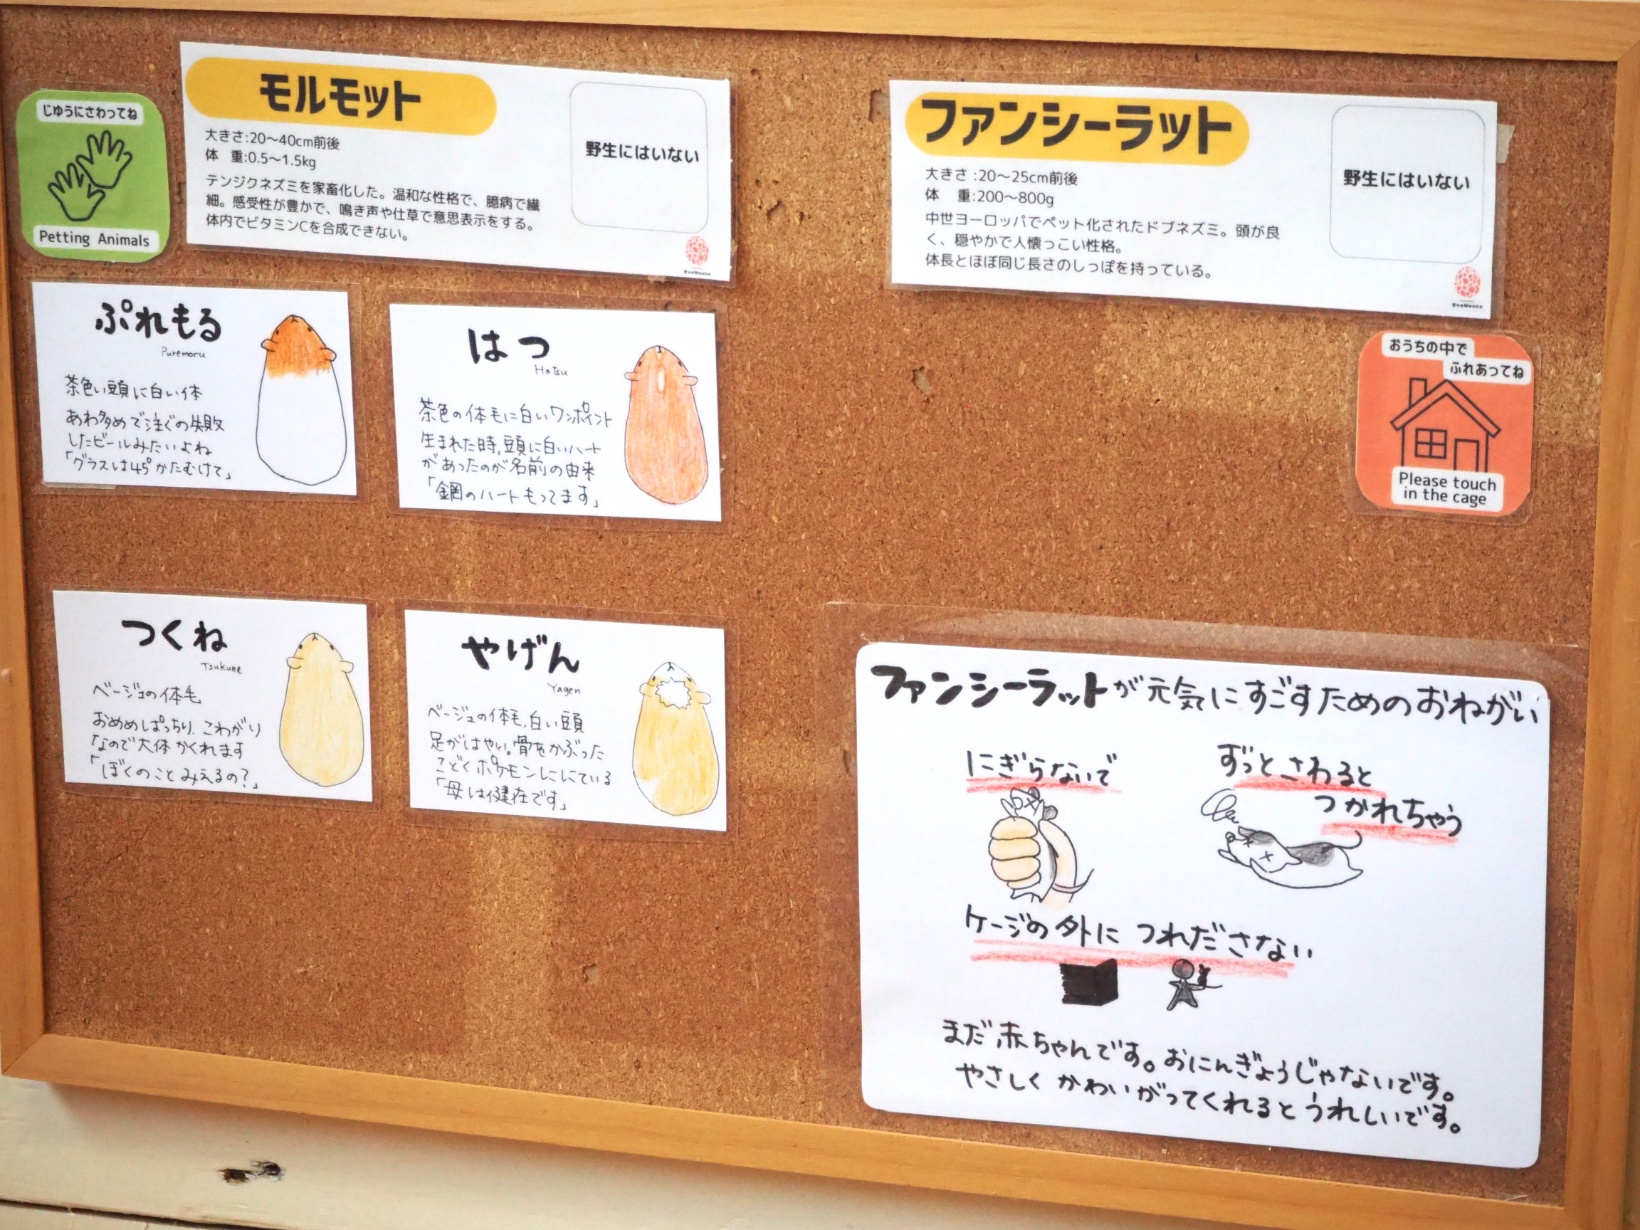 じゆうにさわってね
Petting Animals
モルモット
大きさ:20〜40cm前後
体 重:0.5〜1.5kg
テンジクネズミを家畜化した。温和な性格で、臆病で繊
細。感受性が豊かで、鳴き声や仕草で意思表示をする。
体内でビタミンCを合成できない。
野生にはいない
ファンシーラット
大きさ:20〜25cm前後
体 重:200〜800g
中世ヨーロッパでペット化されたドブネズミ。頭が良
く、穏やかで人懐っこい性格。
体長とほぼ同じ長さのしっぽを持っている。
野生にはいない
おうちの中で
ふれあってね
Please touch
in the cage
ぷれもる
Puremoru
茶色い頭に白い体
あわ多めで注ぐの失敗
したビールみたいよね
「グラスは45°かたむけて」
はつ
Hatsu
茶色の体毛に白いワンポイント
生まれた時、頭に白いハート
があったのが名前の由来
「鋼のハートもってます」
つくね
Tsukune
ベージュの体毛
おめめぱっちり、こわがり
なので大体かくれます
「ぼくのことみえるの?」
やげん
Yagen
ベージュの体毛、白い頭
足がはやい。骨をかぶった
こどくポケモンににている
「母は健在です」
ファンシーラットが元気にすごすためのおねがい
にぎらないで
ずっとさわると
つかれちゃう
ケージの外につれださない
まだ赤ちゃんです。おにんぎょうじゃないです。
やさしくかわいがってくれるとうれしいです。